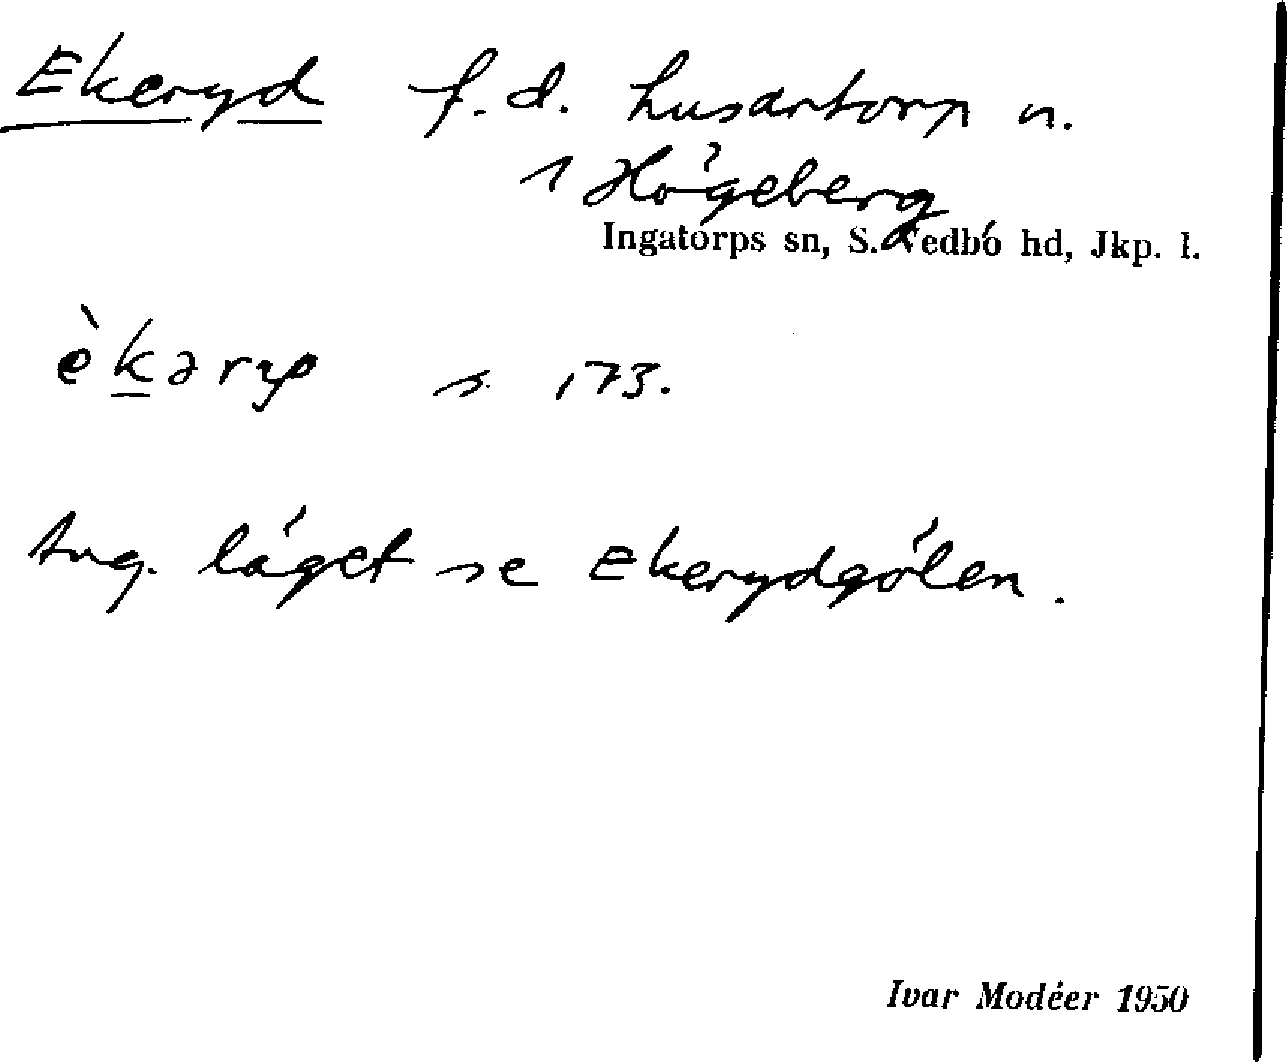 Ekeryd f.d. husartorp n.
1 Högeberg
Ingatorps sn, S. Vedbo hd, Jkp. l.
èkəry s. 173.
Ang. läget se Ekerydgölen.
Ivar Modéer 1950